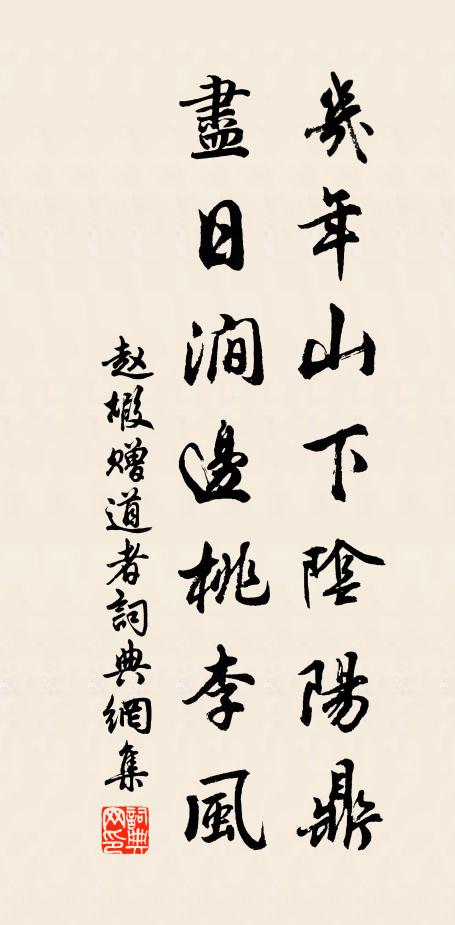 幾年山下陰陽鼎
盡日澗邊桃李風
赵嘏贈道者詞典網集
詞典網印